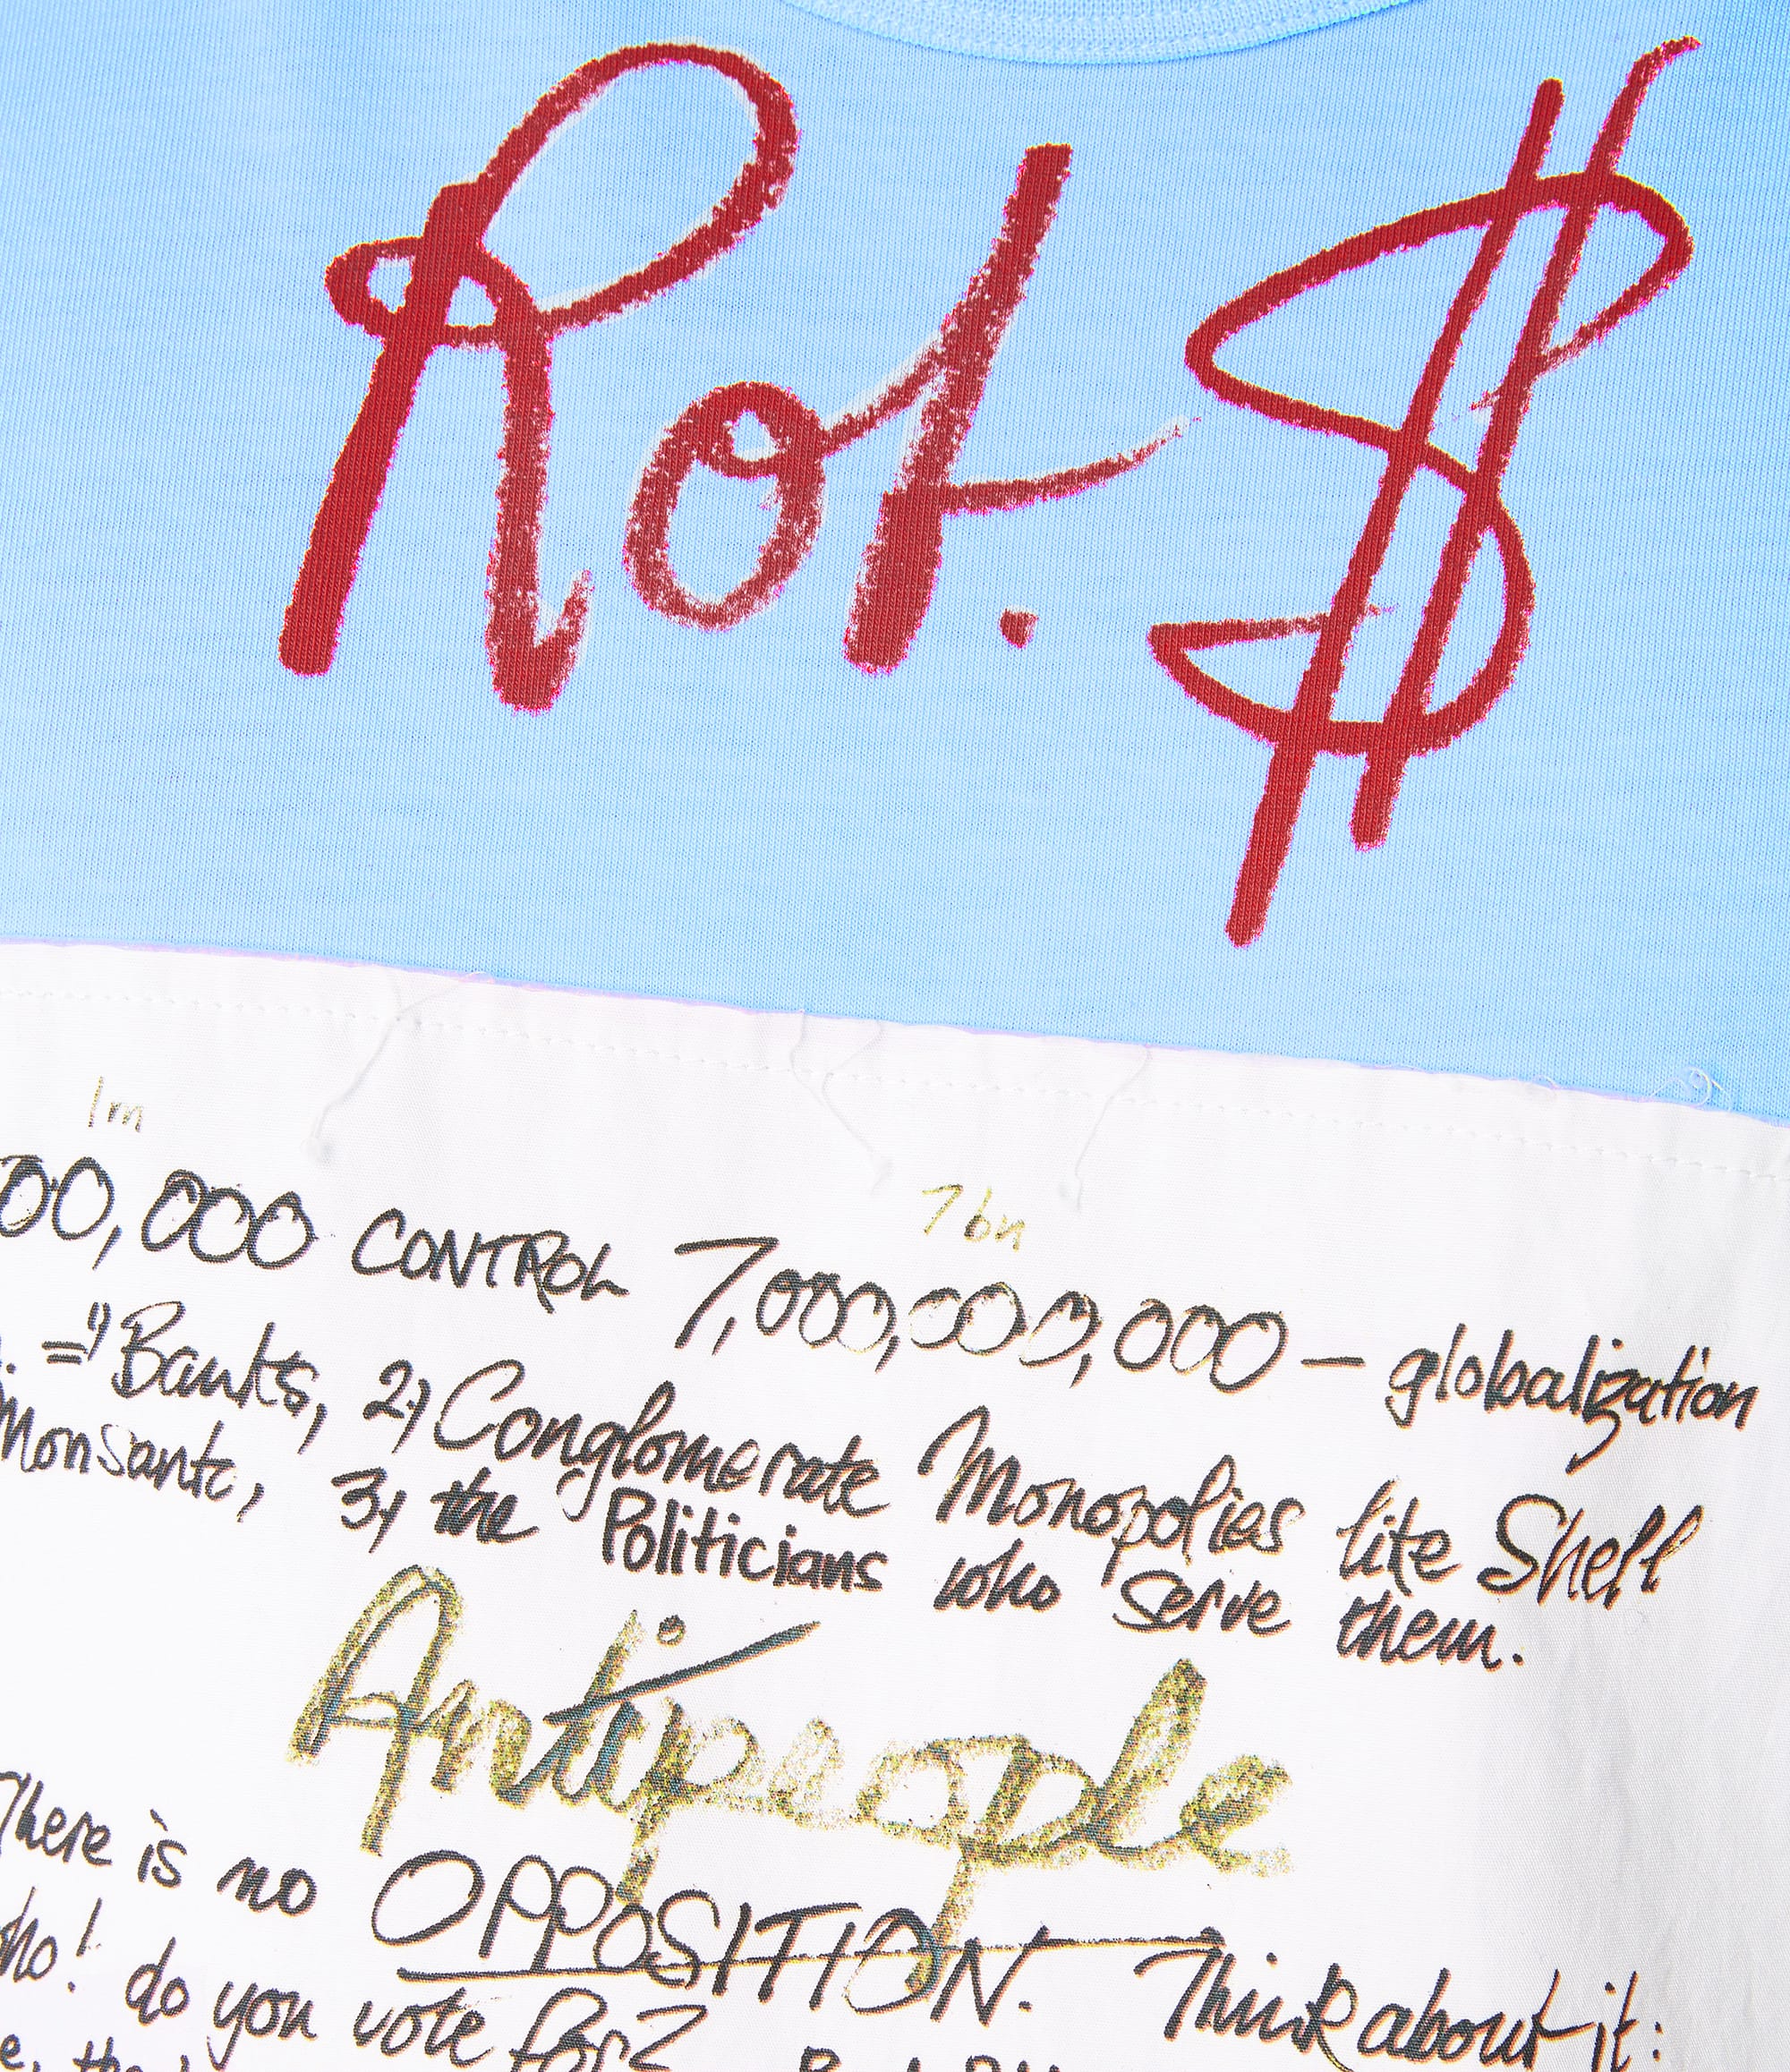 Rot. $
1m
00,000 CONTROL 7,000,000,000 — globalization
7bn
. = 1) Banks, 2) Conglomerate Monopolies like Shell
Monsanto, 3) the Politicians who serve them.
Antipeople
There is no OPPOSITION. Think about it:
who! do you vote for?